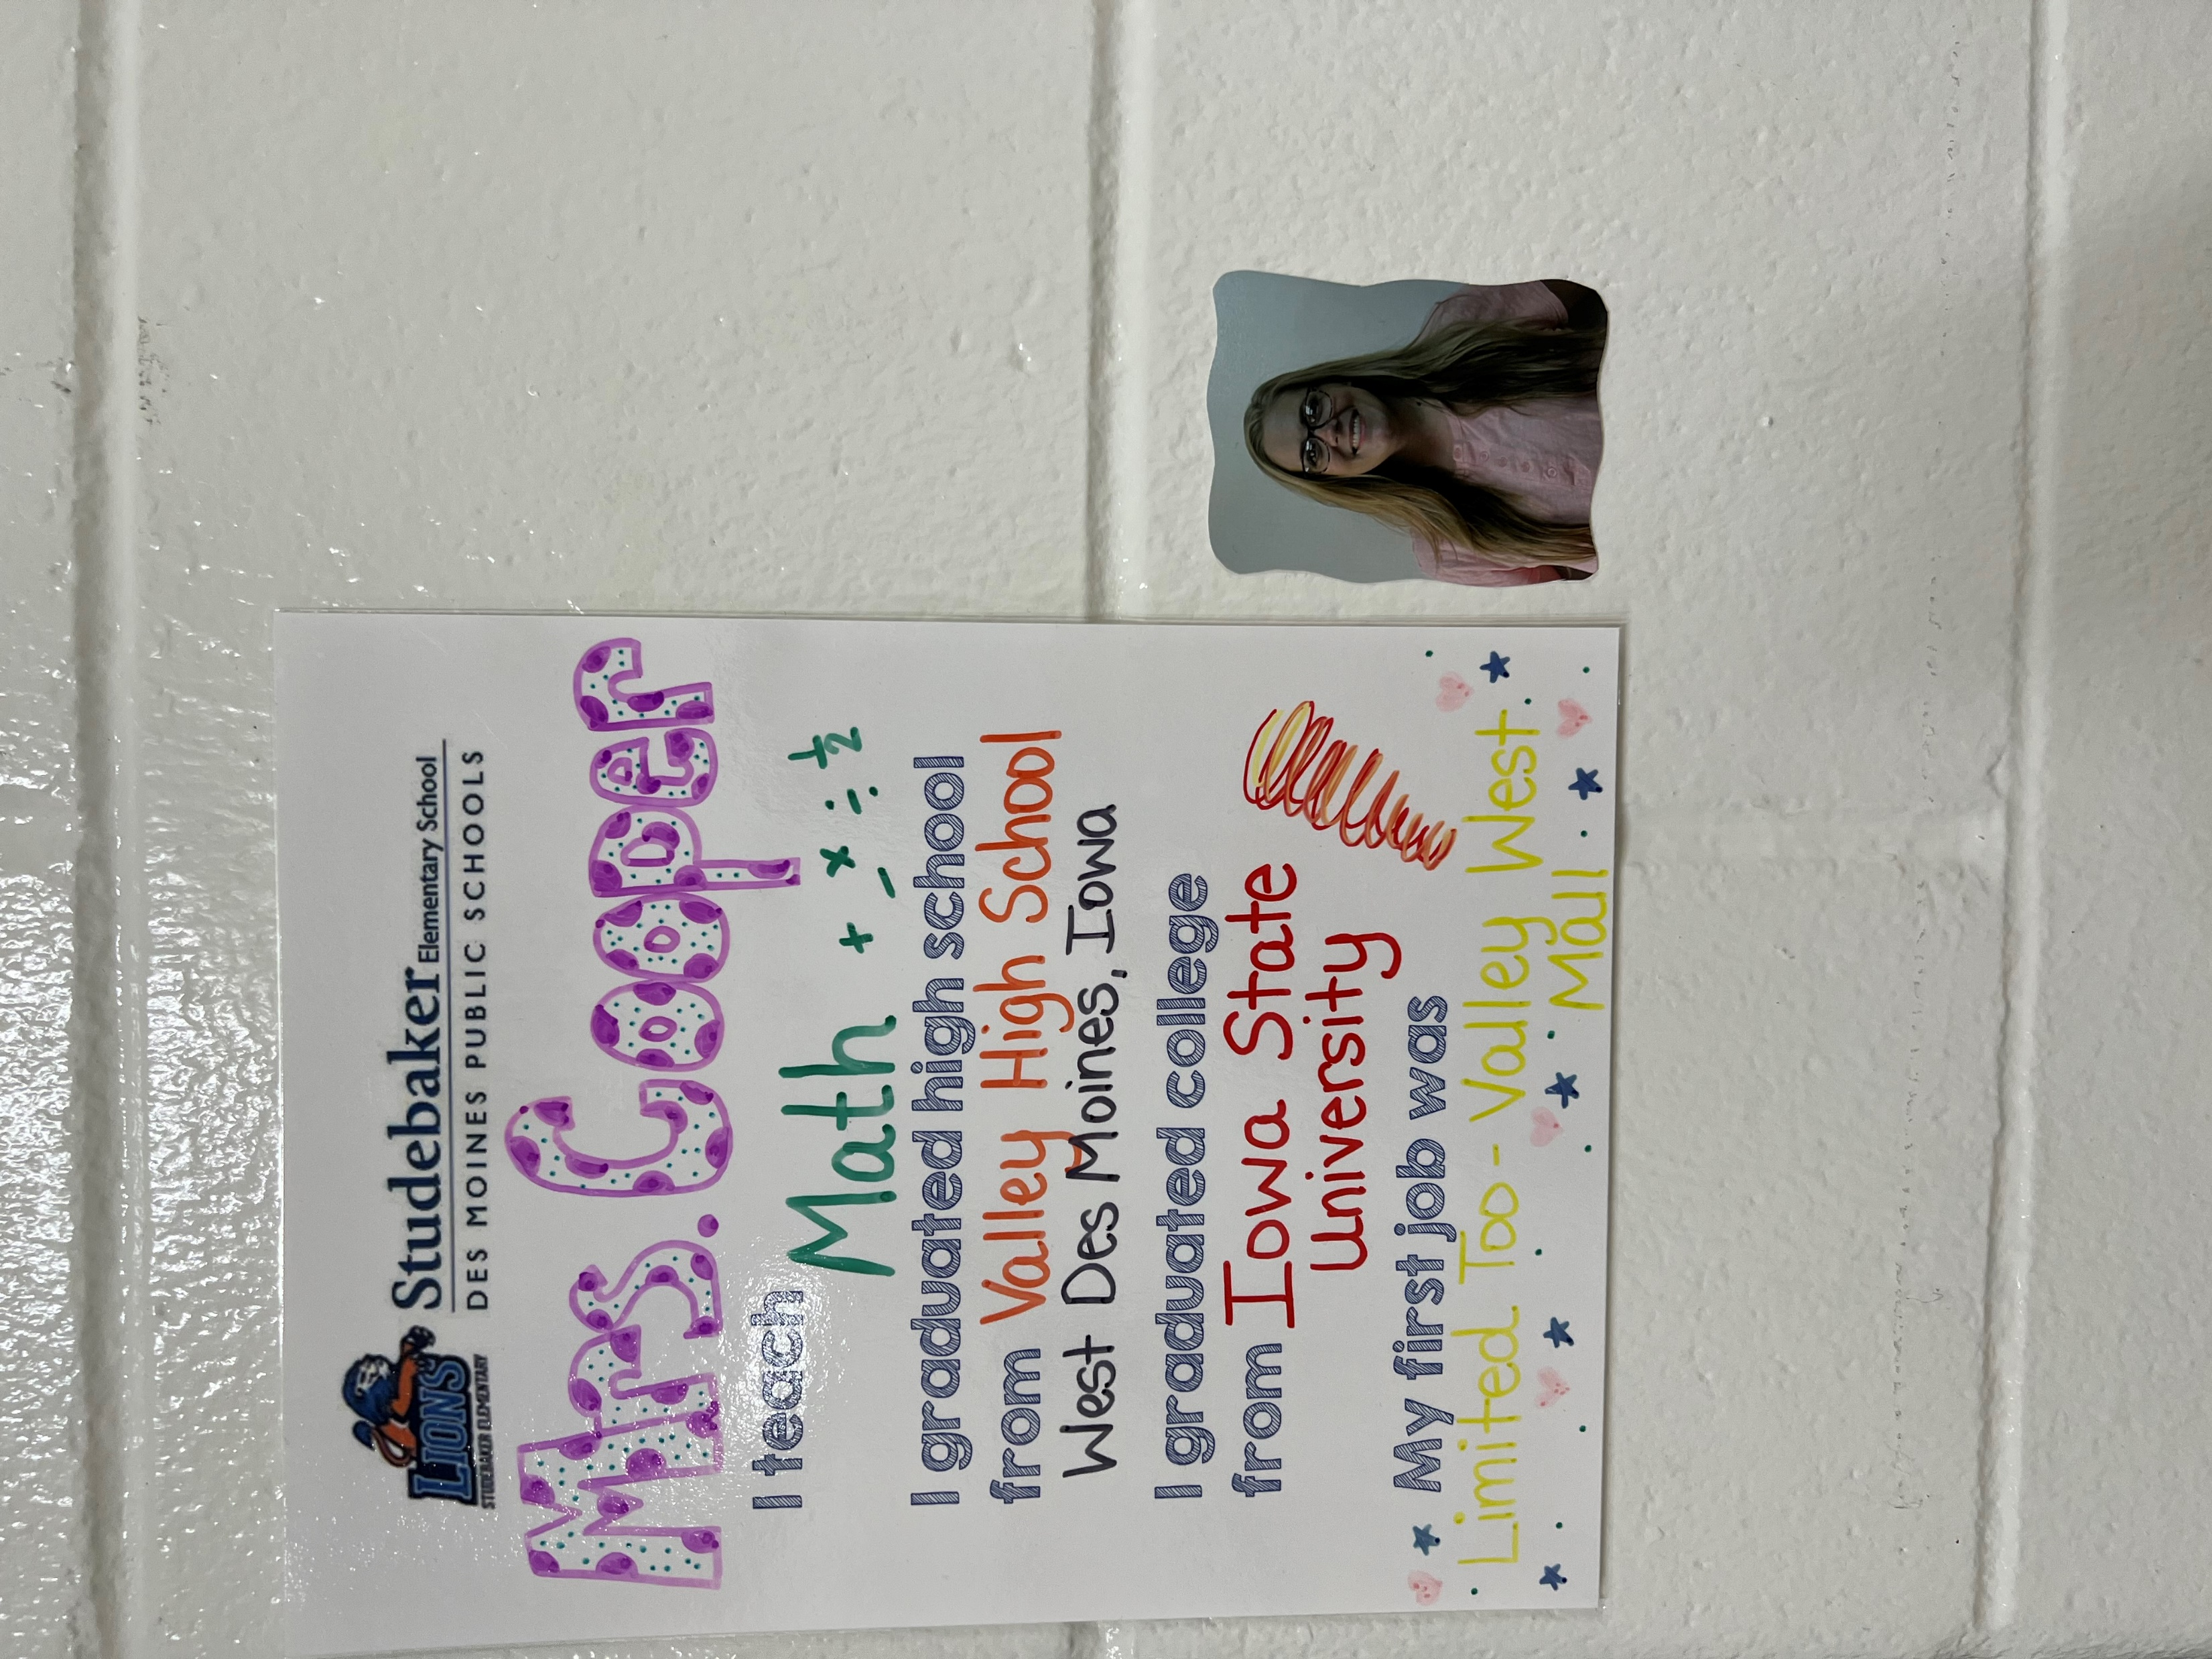 LIONS
STUDEBAKER ELEMENTARY
Studebaker Elementary School
DES MOINES PUBLIC SCHOOLS
Mrs. Cooper
I teach
Math + - × ÷ 1/2
I graduated high school
from Valley High School
West Des Moines, Iowa
I graduated college
from Iowa State
University
My first job was
Limited Too - Valley West
Mall